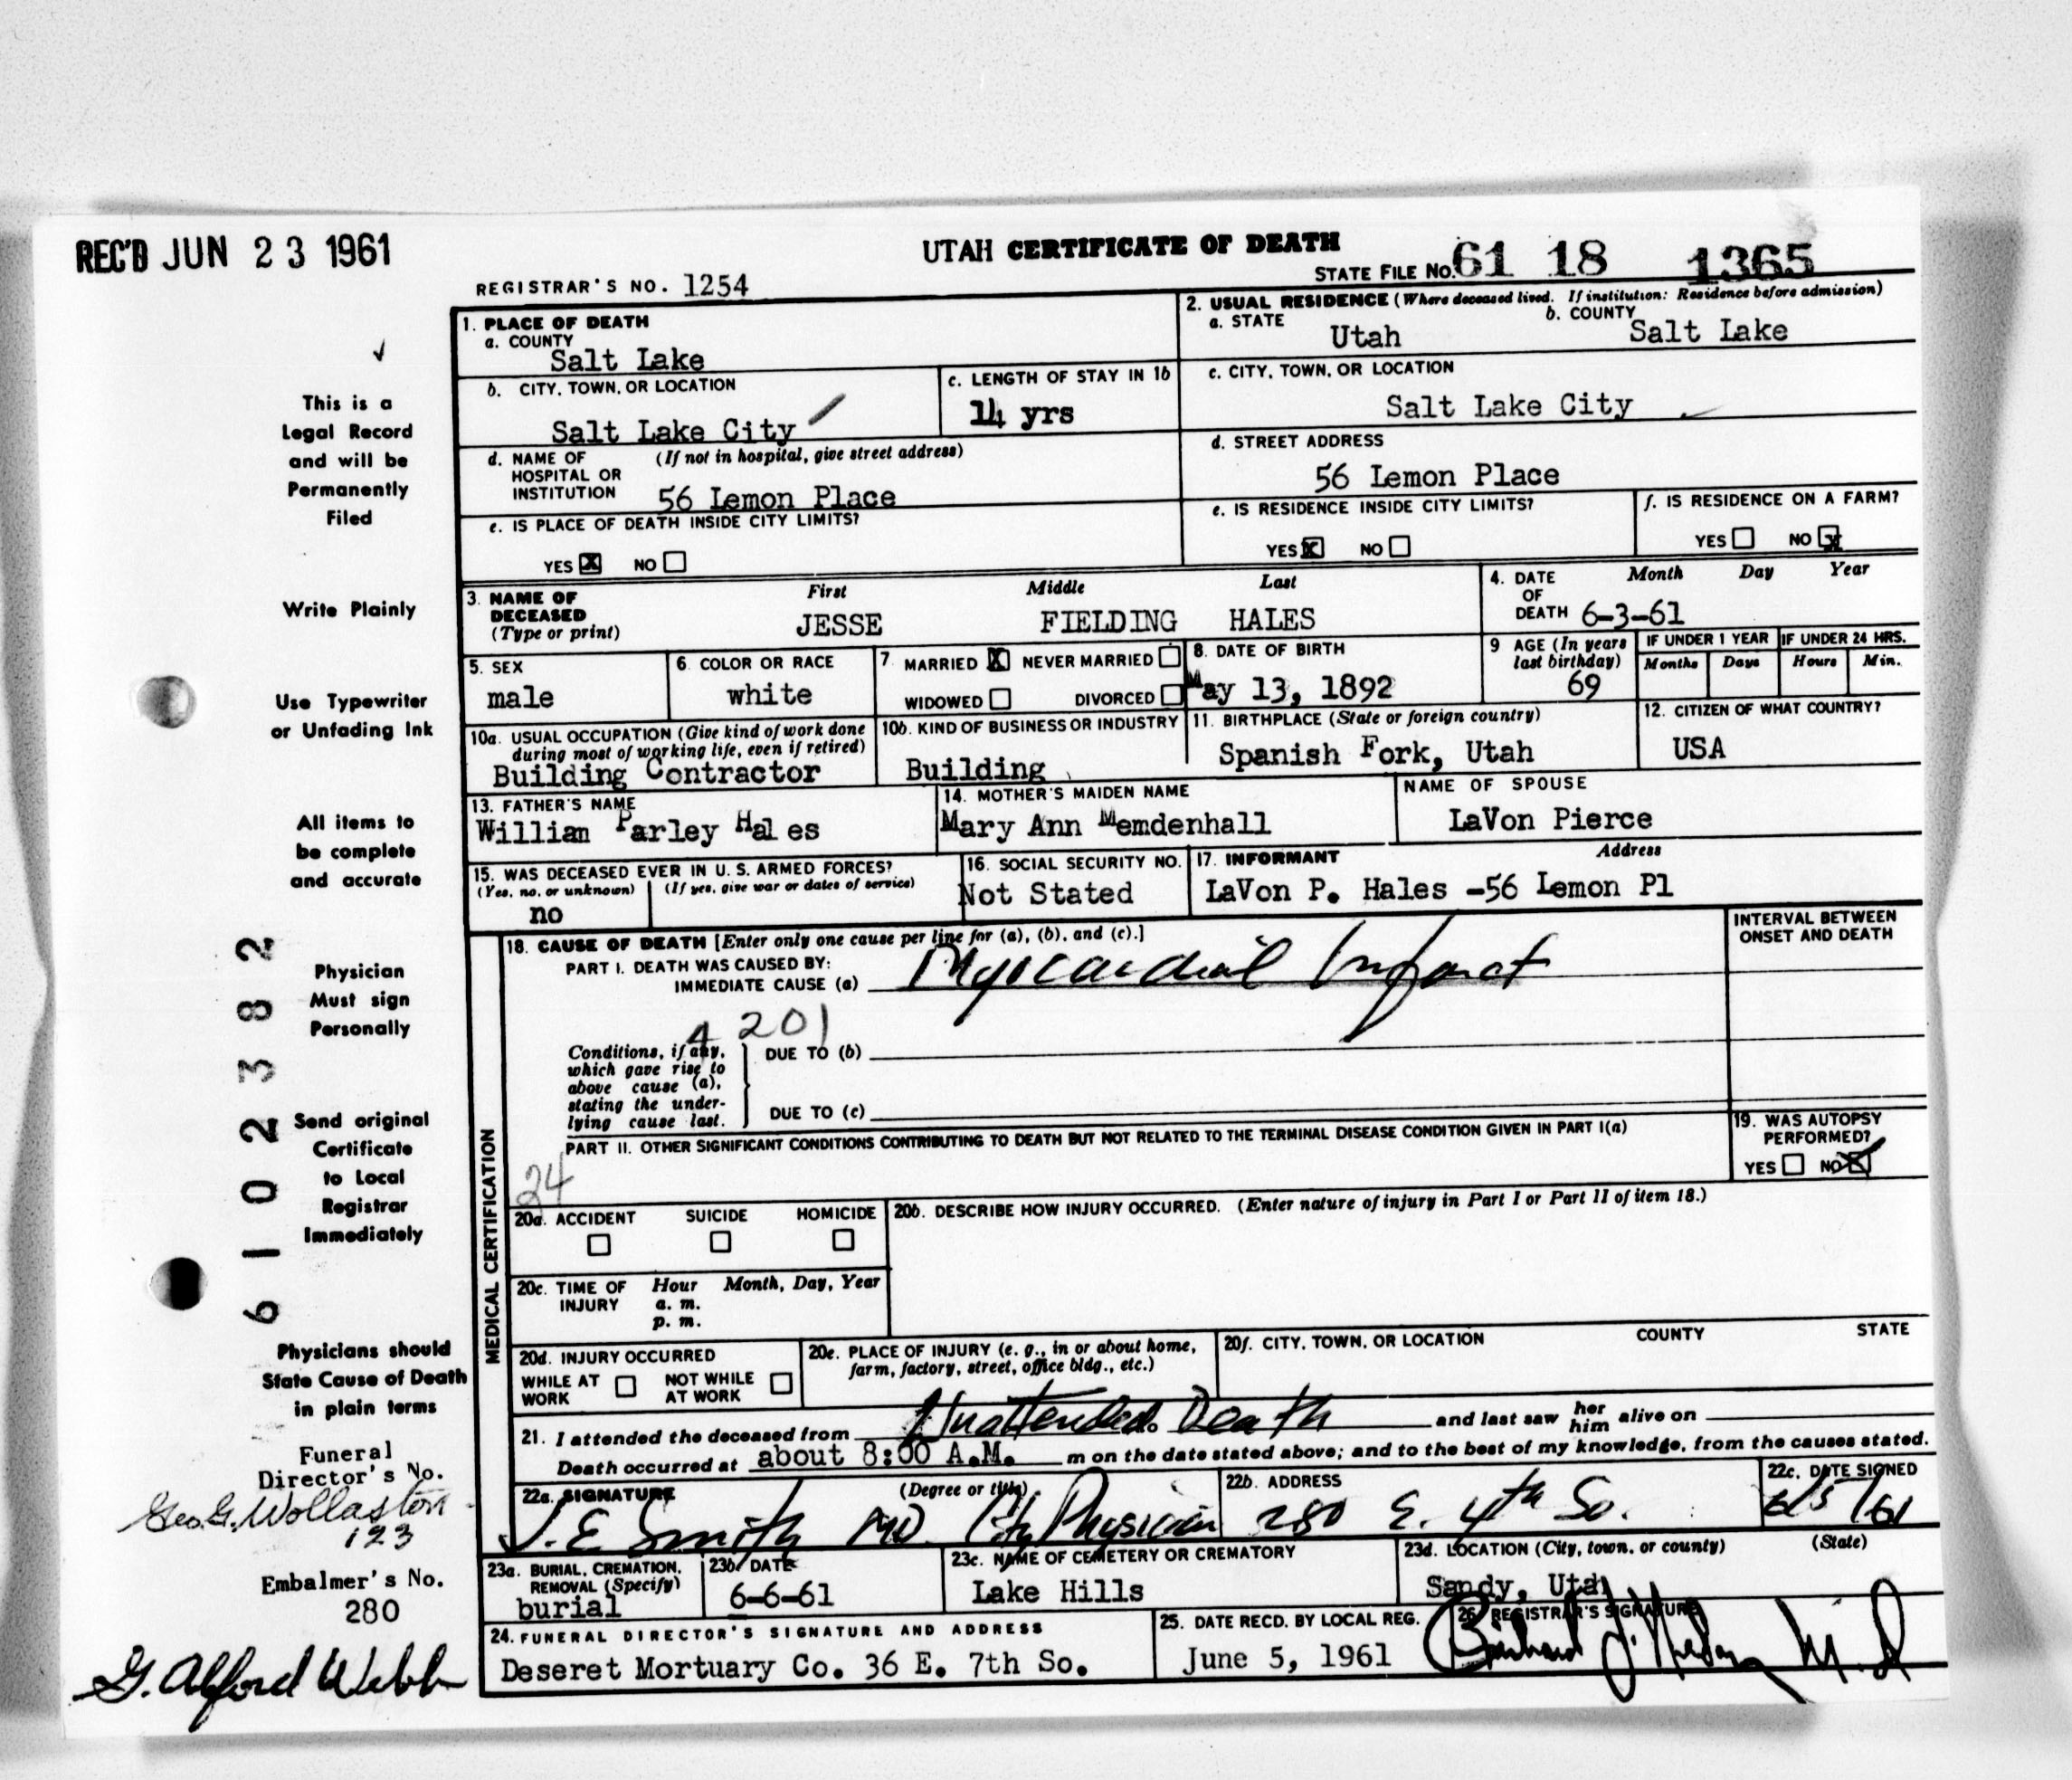 REC'D JUN 23 1961
UTAH CERTIFICATE OF DEATH
REGISTRAR'S NO. 1254
STATE FILE NO. 61 18 1365
1. PLACE OF DEATH
a. COUNTY
Salt Lake
2. USUAL RESIDENCE (Where deceased lived. If institution: Residence before admission)
a. STATE Utah b. COUNTY Salt Lake
b. CITY, TOWN, OR LOCATION
Salt Lake City
c. LENGTH OF STAY IN 1b
14 yrs
c. CITY, TOWN, OR LOCATION
Salt Lake City
d. NAME OF HOSPITAL OR INSTITUTION (If not in hospital, give street address)
56 Lemon Place
d. STREET ADDRESS
56 Lemon Place
e. IS PLACE OF DEATH INSIDE CITY LIMITS?
YES X NO
e. IS RESIDENCE INSIDE CITY LIMITS?
YES X NO
f. IS RESIDENCE ON A FARM?
YES NO X
3. NAME OF DECEASED (Type or print)
First Middle Last
JESSE FIELDING HALES
4. DATE OF DEATH Month Day Year
6-3-61
5. SEX
male
6. COLOR OR RACE
white
7. MARRIED X NEVER MARRIED
WIDOWED DIVORCED
8. DATE OF BIRTH
May 13, 1892
9 AGE (In years last birthday)
69
IF UNDER 1 YEAR IF UNDER 24 HRS.
Months Days Hours Min.
10a. USUAL OCCUPATION (Give kind of work done during most of working life, even if retired)
Building Contractor
10b. KIND OF BUSINESS OR INDUSTRY
Building
11. BIRTHPLACE (State or foreign country)
Spanish Fork, Utah
12. CITIZEN OF WHAT COUNTRY?
USA
13. FATHER'S NAME
Willian Parley Hales
14. MOTHER'S MAIDEN NAME
Mary Ann Memdenhall
NAME OF SPOUSE
LaVon Pierce
15. WAS DECEASED EVER IN U.S. ARMED FORCES?
(Yes, no, or unknown) (If yes, give war or dates of service)
no
16. SOCIAL SECURITY NO.
Not Stated
17. INFORMANT Address
LaVon P. Hales -56 Lemon Pl
MEDICAL CERTIFICATION
18. CAUSE OF DEATH [Enter only one cause per line for (a), (b), and (c).]
PART I. DEATH WAS CAUSED BY:
IMMEDIATE CAUSE (a) Myocardial Infarct
INTERVAL BETWEEN ONSET AND DEATH
4 201
Conditions, if any, which gave rise to above cause (a), stating the underlying cause last.
DUE TO (b)
DUE TO (c)
PART II. OTHER SIGNIFICANT CONDITIONS CONTRIBUTING TO DEATH BUT NOT RELATED TO THE TERMINAL DISEASE CONDITION GIVEN IN PART I(a)
24
19. WAS AUTOPSY PERFORMED?
YES NO X
20a. ACCIDENT SUICIDE HOMICIDE
20b. DESCRIBE HOW INJURY OCCURRED. (Enter nature of injury in Part I or Part II of item 18.)
20c. TIME OF INJURY Hour Month, Day, Year
a. m.
p. m.
20d. INJURY OCCURRED
WHILE AT WORK NOT WHILE AT WORK
20e. PLACE OF INJURY (e. g., in or about home, farm, factory, street, office bldg., etc.)
20f. CITY, TOWN, OR LOCATION COUNTY STATE
21. I attended the deceased from Unattended Death and last saw her him alive on
Death occurred at about 8:00 A.M. m on the date stated above; and to the best of my knowledge, from the causes stated.
22a. SIGNATURE (Degree or title)
J. E. Smith MD. City Physician
22b. ADDRESS
280 E. 4th So.
22c. DATE SIGNED
6/5/61
23a. BURIAL, CREMATION, REMOVAL (Specify)
burial
23b. DATE
6-6-61
23c. NAME OF CEMETERY OR CREMATORY
Lake Hills
23d. LOCATION (City, town, or county) (State)
Sandy, Utah
24. FUNERAL DIRECTOR'S SIGNATURE AND ADDRESS
Deseret Mortuary Co. 36 E. 7th So.
25. DATE RECD. BY LOCAL REG.
June 5, 1961
26. REGISTRAR'S SIGNATURE
This is a
Legal Record
and will be
Permanently
Filed
Write Plainly
Use Typewriter
or Unfading Ink
All items to
be complete
and accurate
Physician
Must sign
Personally
Send original
Certificate
to Local
Registrar
Immediately
Physicians should
State Cause of Death
in plain terms
61 02382
Funeral
Director's No.
Geo. G. Wollaston
123
Embalmer's No.
280
G. Alford Webb